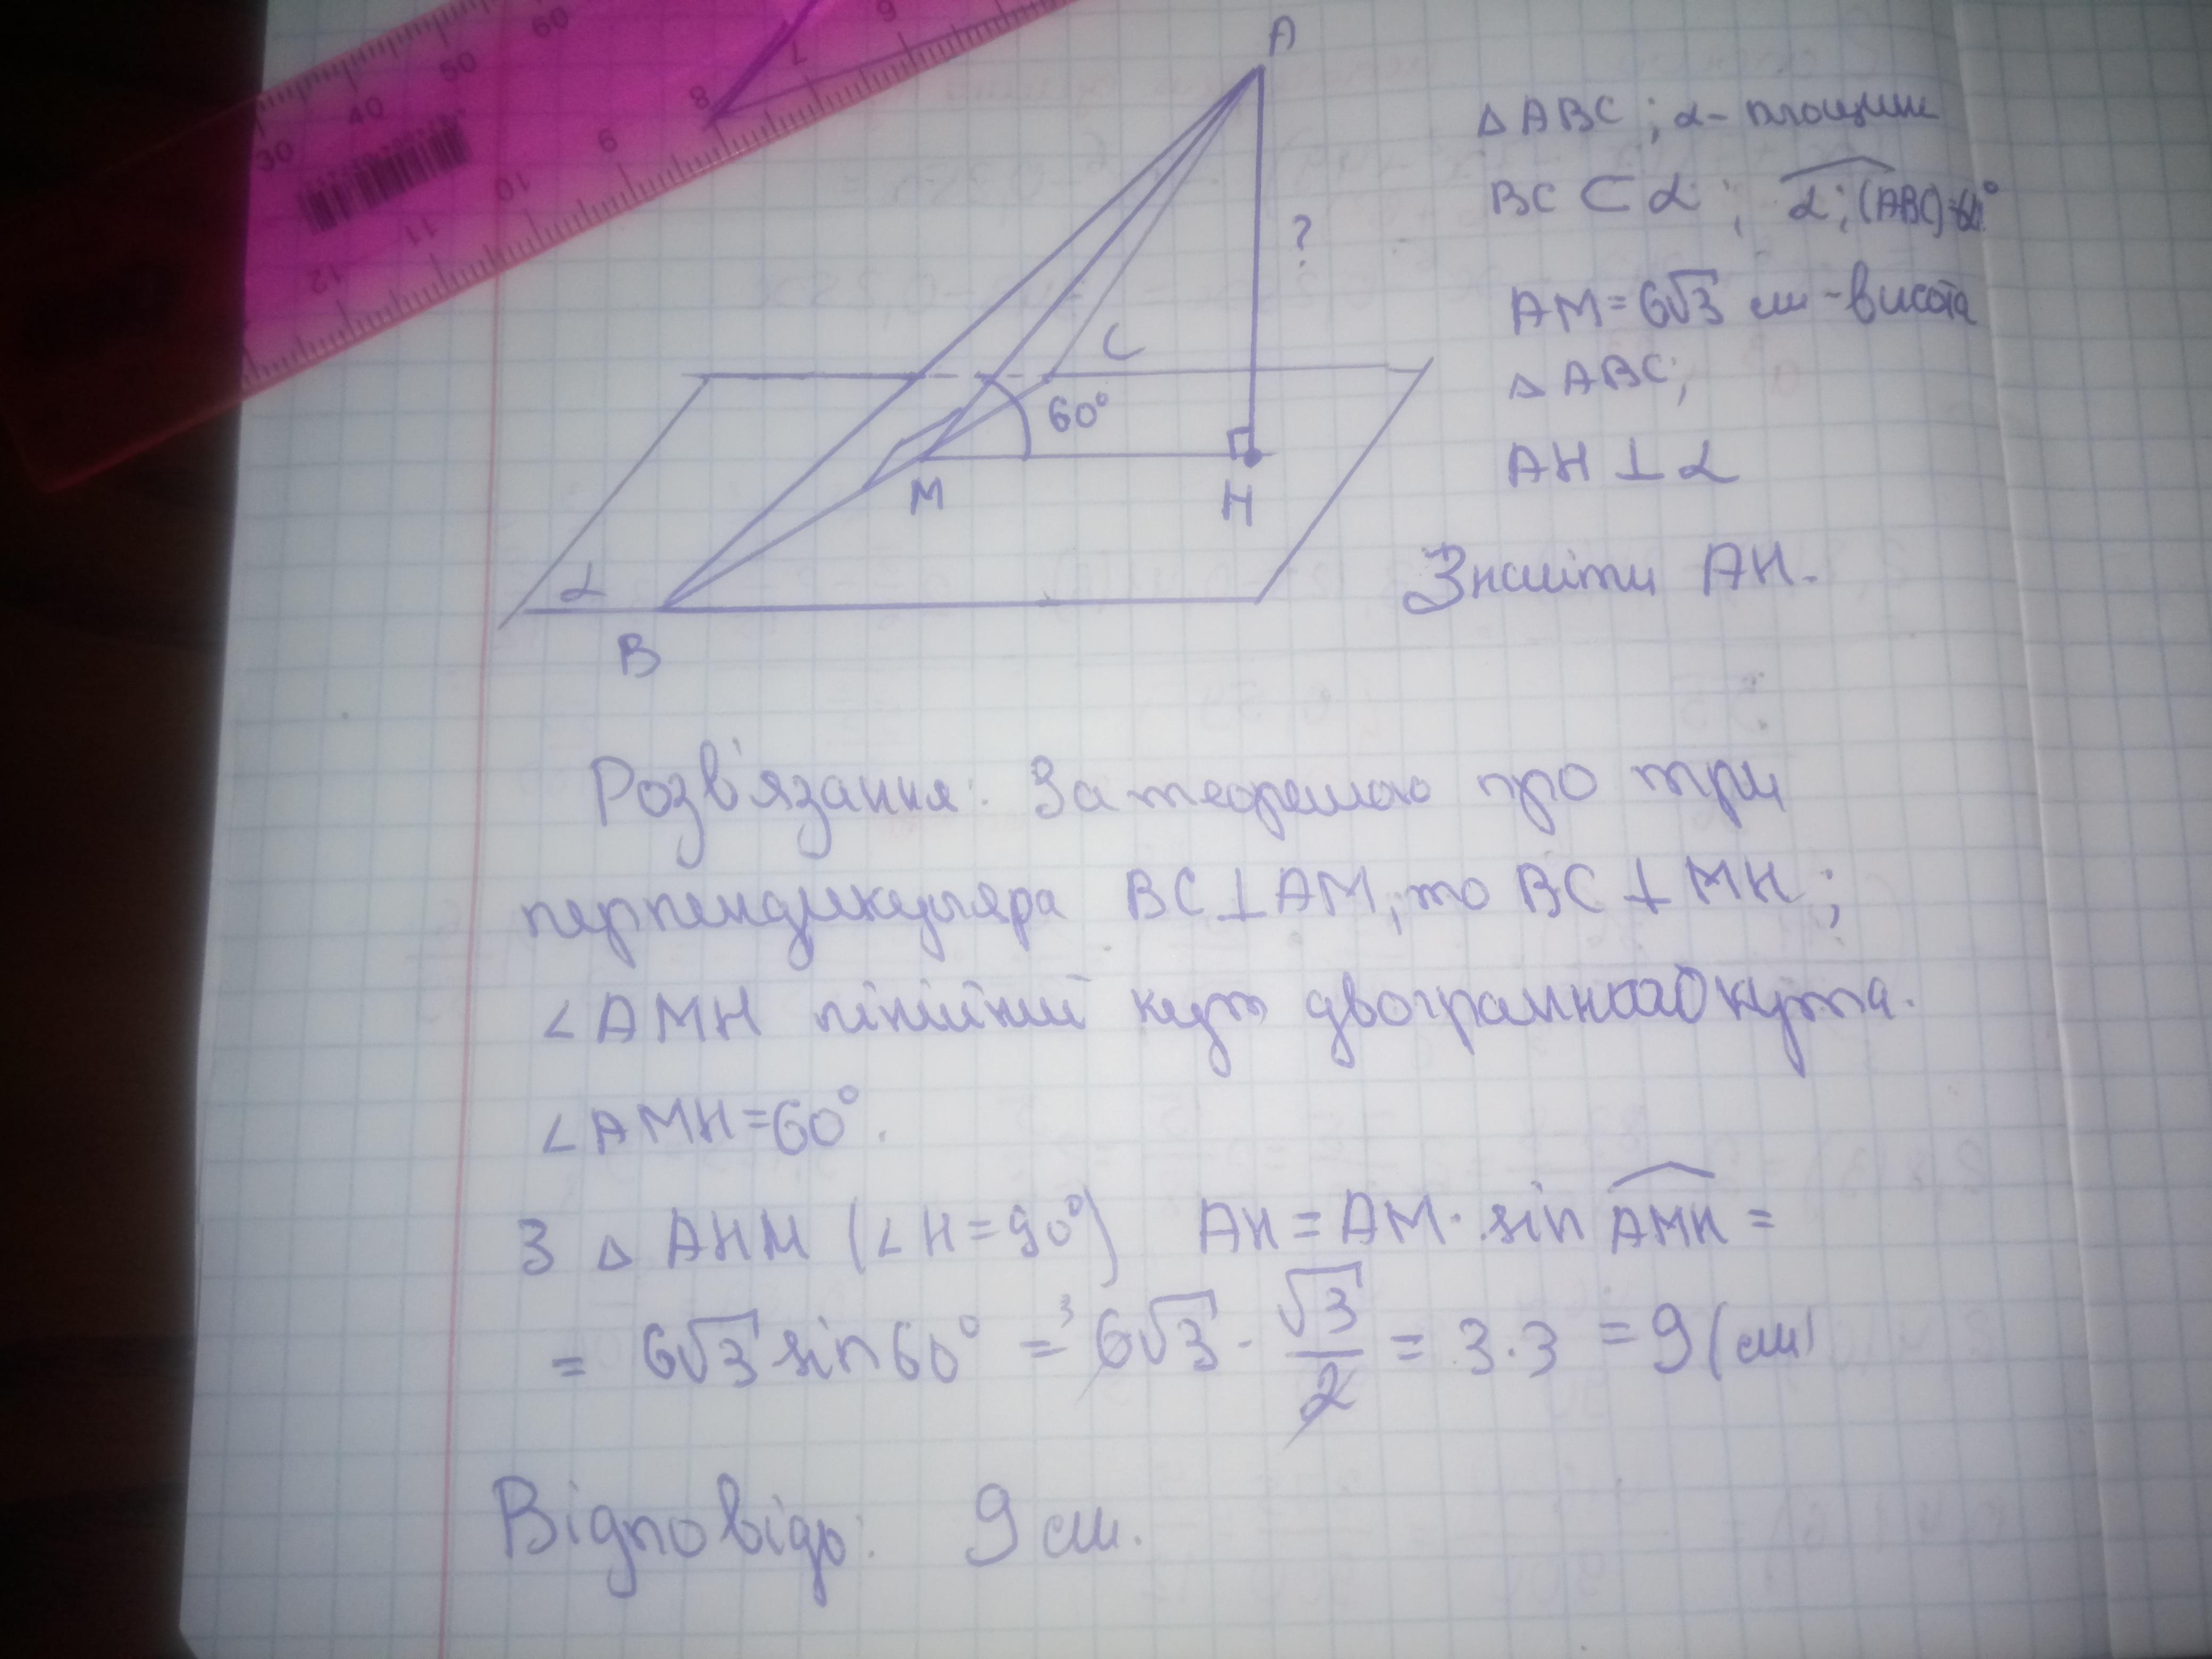 30 40 50 60
12 11 10 9 8 7 6
A
?
C
60°
M
H
α
B
△ABC; α- площина
BC ⊂ α; α;(ABC)=60°
AM=6√3 см - висота
△ABC;
AH ⊥ α
Знайти AH.
Розв'язання: За теоремою про три
перпендикуляра BC⊥AM, то BC⊥MH;
∠AMH лінійний кут двогранного кута.
∠AMH=60°.
З △ AHM (∠H=90°) AH = AM · sin AMH =
= 6√3 sin 60° = ³6√3 · √3/2 = 3·3 = 9 (см)
Відповідь: 9 см.